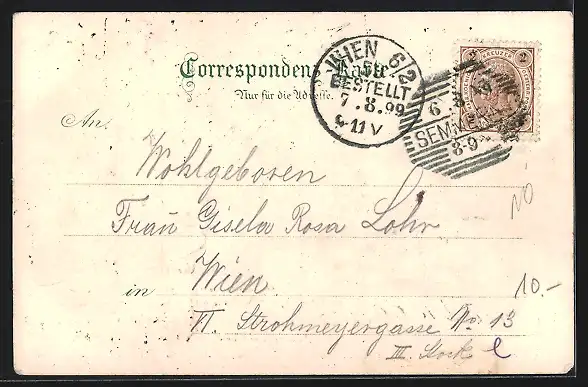 Correspondenz-Karte.
Nur für die Adresse.
WIEN 6/2
BESTELLT
7.8.99
9-11V
KREUZER
2
6
SEMM
8-9
An
Wohlgeboren
Frau Gisela Rosa Lohr
10
in Wien
10.-
VI Strohmeyergasse No 13
III Stock